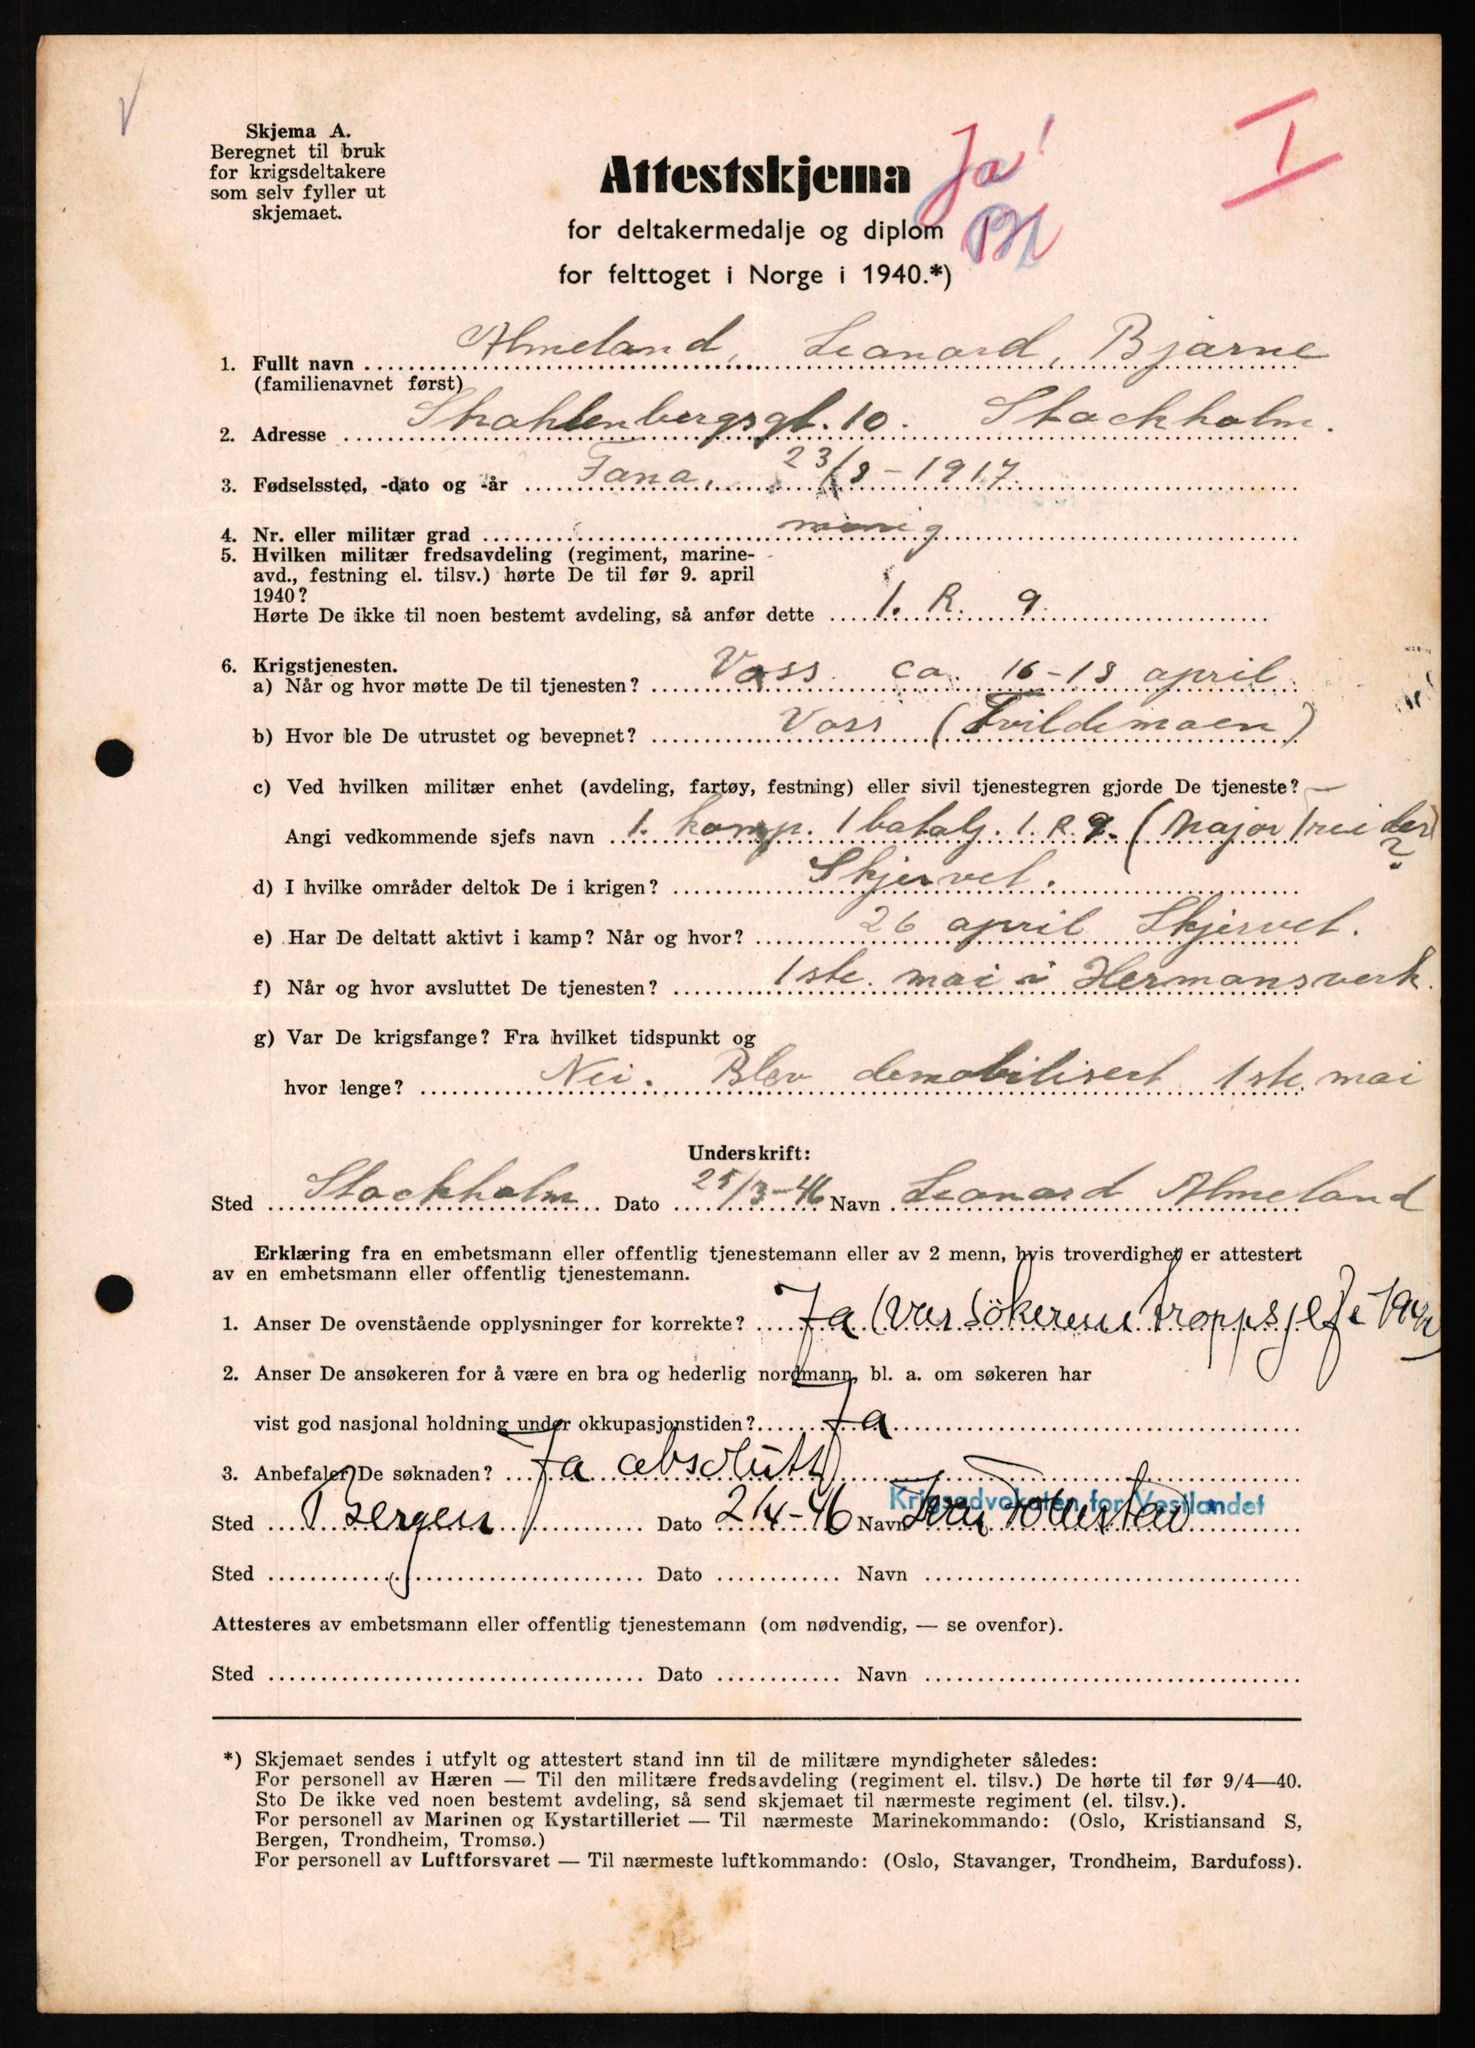 Skjema A.
Beregnet til bruk
for krigsdeltakere
som selv fyller ut
skjemaet.
Attestskjema
Ja!
I
for deltakermedalje og diplom
for felttoget i Norge i 1940.*)
1. Fullt navn Almeland, Leonard, Bjarne
(familienavnet først)
2. Adresse Strahlenbergsgt. 10. Stockholm.
3. Fødselssted, -dato og -år Fana, 23/8-1917.
4. Nr. eller militær grad menig
5. Hvilken militær fredsavdeling (regiment, marine-
avd., festning el. tilsv.) hørte De til før 9. april
1940?
Hørte De ikke til noen bestemt avdeling, så anfør dette I. R. 9.
6. Krigstjenesten.
a) Når og hvor møtte De til tjenesten? Voss ca. 16-18 april
b) Hvor ble De utrustet og bevepnet? Voss (Tvildemoen)
c) Ved hvilken militær enhet (avdeling, fartøy, festning) eller sivil tjenestegren gjorde De tjeneste?
Angi vedkommende sjefs navn 1. komp. 1 batalj. I.R.9. (Major Treider)
?
d) I hvilke områder deltok De i krigen? Skjervet.
e) Har De deltatt aktivt i kamp? Når og hvor? 26 april Skjervet.
f) Når og hvor avsluttet De tjenesten? 1ste. mai i Hermansverk.
g) Var De krigsfange? Fra hvilket tidspunkt og
hvor lenge? Nei. Blev demobilisert 1ste. mai
Underskrift:
Sted Stockholm Dato 25/3-46 Navn Leonard Almeland
Erklæring fra en embetsmann eller offentlig tjenestemann eller av 2 menn, hvis troverdighet er attestert
av en embetsmann eller offentlig tjenestemann.
1. Anser De ovenstående opplysninger for korrekte? Ja (var søkerens troppsjef i 1940)
2. Anser De ansøkeren for å være en bra og hederlig nordmann, bl. a. om søkeren har
vist god nasjonal holdning under okkupasjonstiden? Ja
3. Anbefaler De søknaden? Ja absolutt
Krigsadvokaten for Vestlandet
Sted Bergen Dato 2/4-46 Navn
Sted Dato Navn
Attesteres av embetsmann eller offentlig tjenestemann (om nødvendig, — se ovenfor).
Sted Dato Navn
*) Skjemaet sendes i utfylt og attestert stand inn til de militære myndigheter således:
For personell av Hæren — Til den militære fredsavdeling (regiment el. tilsv.) De hørte til før 9/4—40.
Sto De ikke ved noen bestemt avdeling, så send skjemaet til nærmeste regiment (el. tilsv.).
For personell av Marinen og Kystartilleriet — Til nærmeste Marinekommando: (Oslo, Kristiansand S,
Bergen, Trondheim, Tromsø.)
For personell av Luftforsvaret — Til nærmeste luftkommando: (Oslo, Stavanger, Trondheim, Bardufoss).